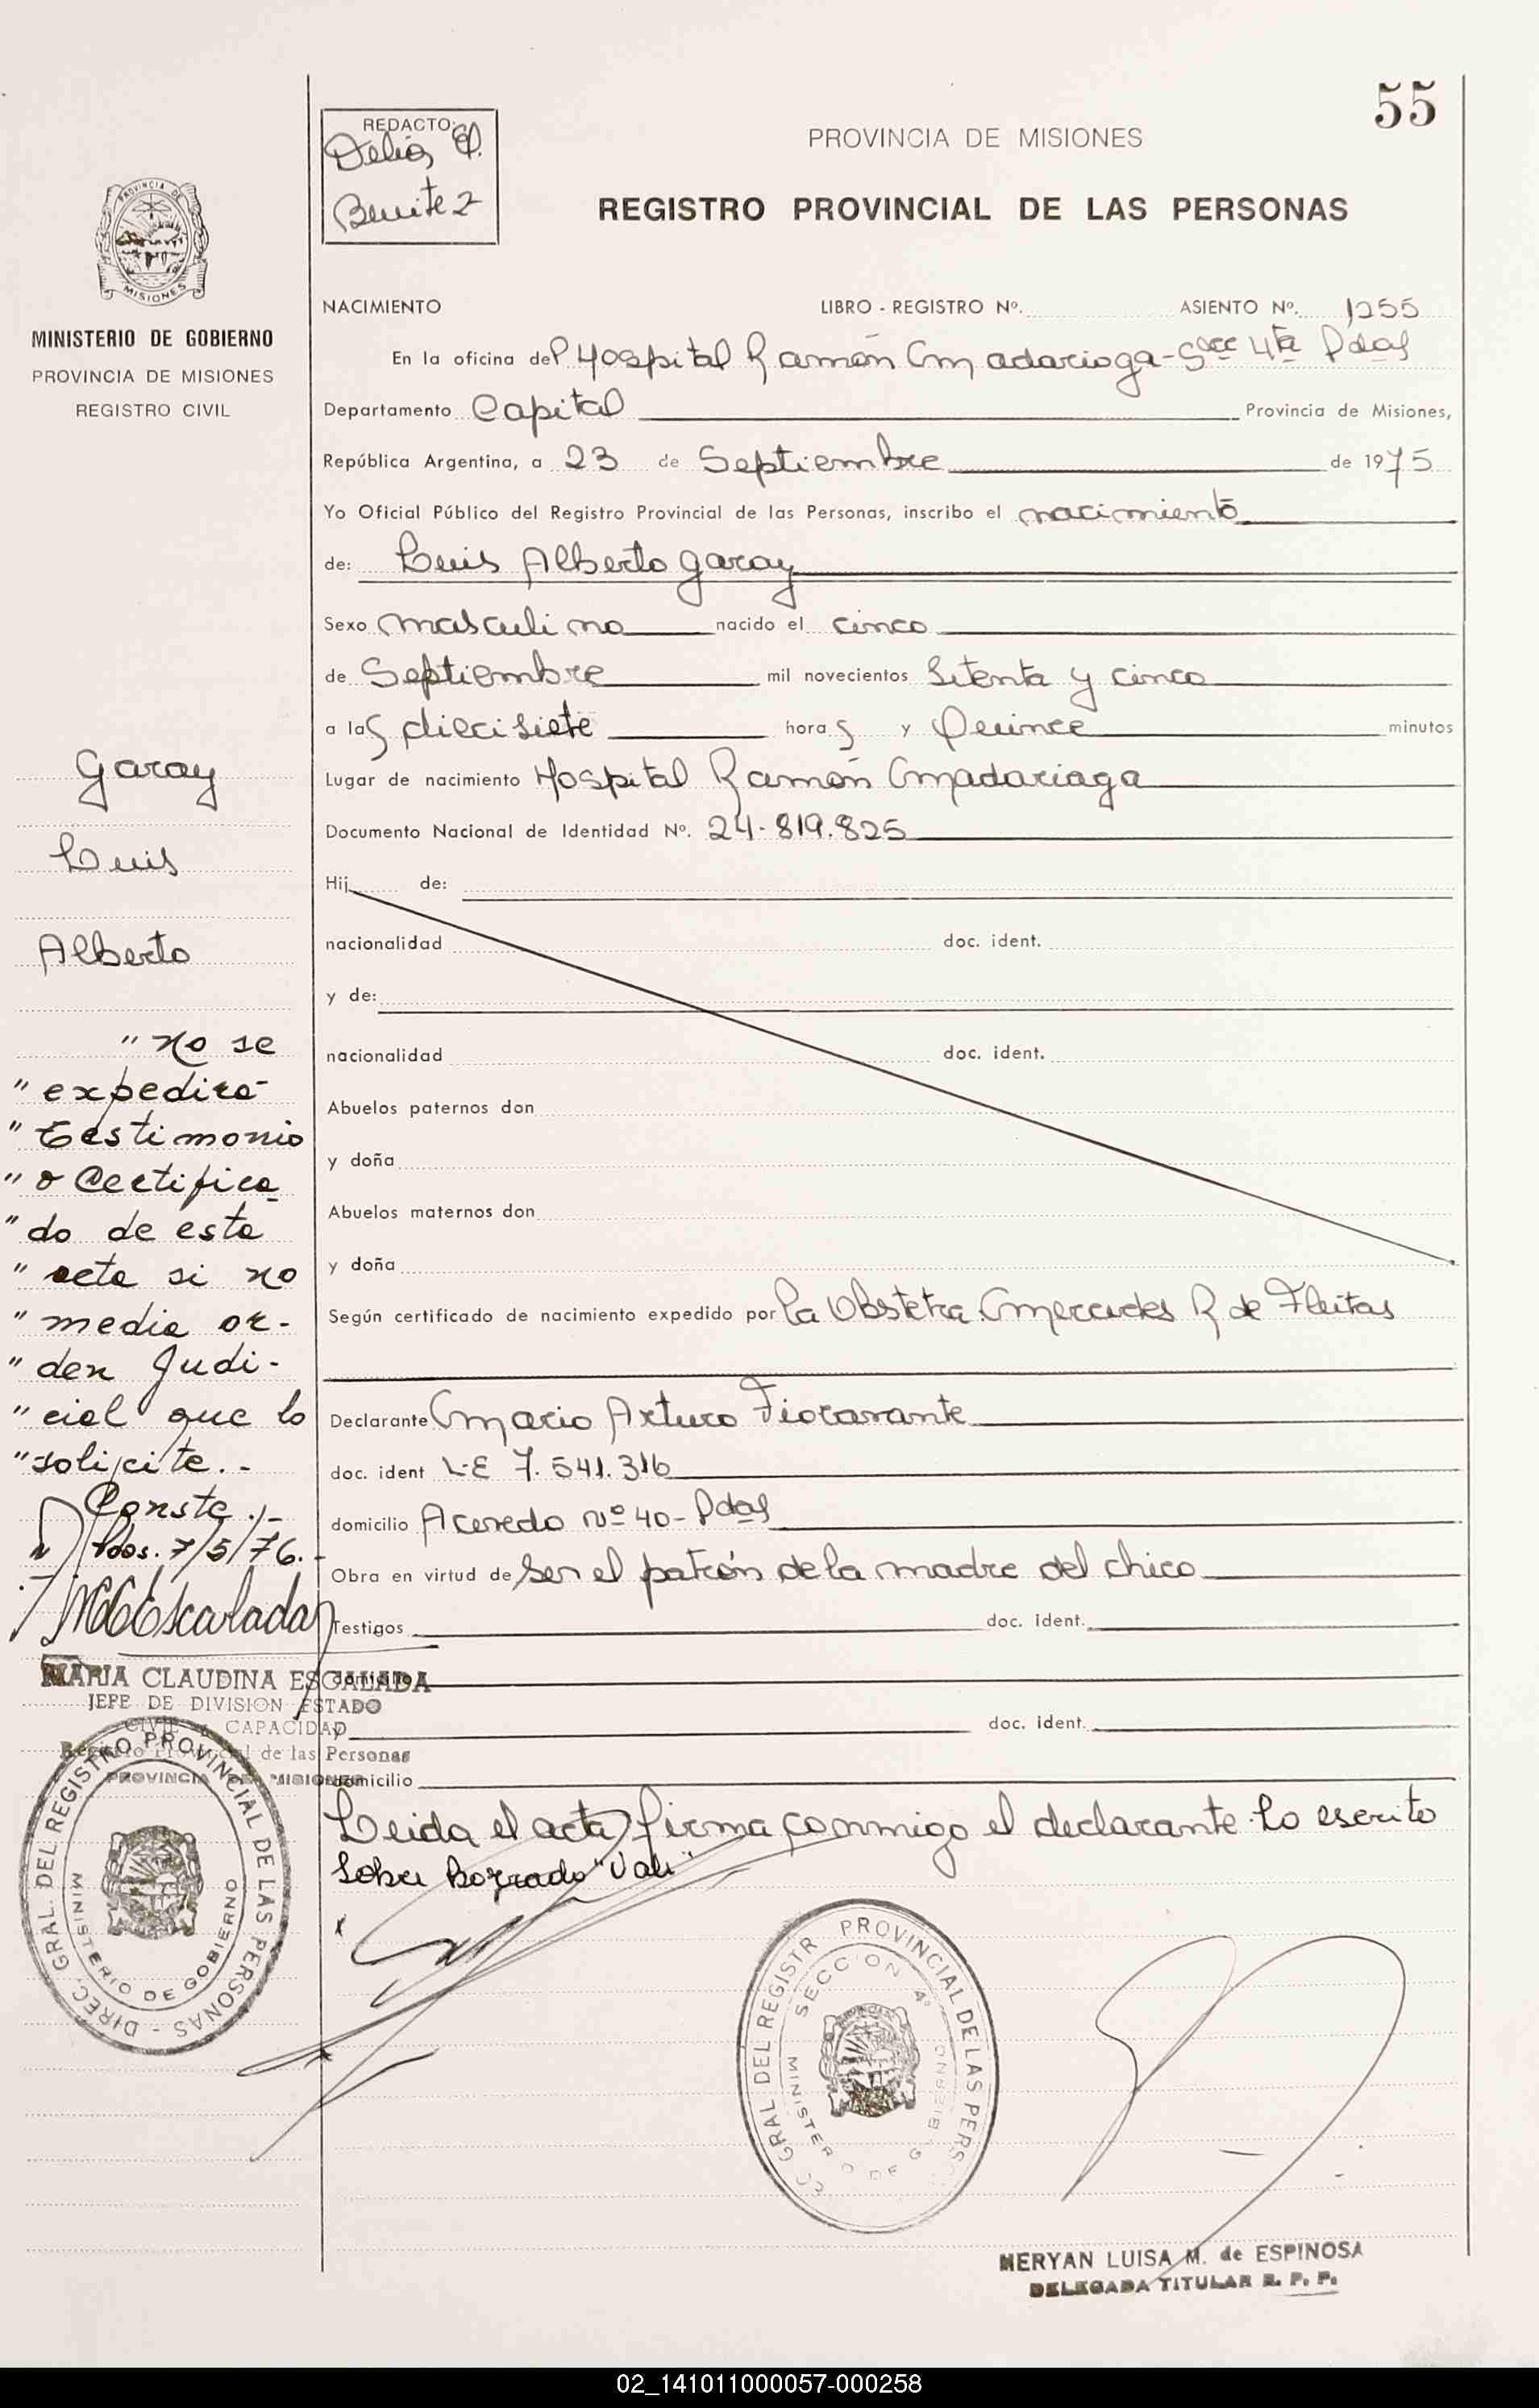 55
REDACTO:
Delia E.
Benitez
PROVINCIA DE MISIONES
REGISTRO PROVINCIAL DE LAS PERSONAS
PROVINCIA DE
MISIONES
MINISTERIO DE GOBIERNO
PROVINCIA DE MISIONES
REGISTRO CIVIL
NACIMIENTO LIBRO - REGISTRO Nº. ASIENTO Nº. 1255
En la oficina del Hospital Ramón Madarioga - Sec 4ta Pdas
Departamento Capital Provincia de Misiones,
República Argentina, a 23 de Septiembre de 1975
Yo Oficial Público del Registro Provincial de las Personas, inscribo el nacimiento
de: Luis Alberto Garay
Sexo masculino nacido el cinco
de Septiembre mil novecientos Setenta y cinco
a las diecisiete horas y Quince minutos
Lugar de nacimiento Hospital Ramón Madariaga
Documento Nacional de Identidad Nº. 24-819.825
Hij de:
nacionalidad doc. ident.
y de:
nacionalidad doc. ident.
Abuelos paternos don
y doña
Abuelos maternos don
y doña
Según certificado de nacimiento expedido por la Obstetra Mercedes R de Fleitas
Declarante Mario Arturo Fioravante
doc. ident L-E 7.541.316
domicilio Acevedo Nº 40 - Pdas
Obra en virtud de ser el patrón de la madre del chico
Testigos doc. ident.
domicilio
doc. ident.
domicilio
Leida el acta firma conmigo el declarante. Lo escrito
sobre borrado "Vale"
Garay
Luis
Alberto
" No se
" expedirá
" testimonio
" o Certifica
" do de esta
" acta si no
" media or-
" den Judi-
" cial que lo
" solicite.-
Conste.-
Pdas. 7/5/76.-
MCEscalada
MARIA CLAUDINA ESCALADA
JEFE DE DIVISION ESTADO
CIVIL y CAPACIDAD
Registro Provincial de las Personas
PROVINCIA DE MISIONES
DIREC. GRAL. DEL REGISTRO PROVINCIAL DE LAS PERSONAS -
MINISTERIO DE GOBIERNO
GRAL DEL REGISTR PROVINCIAL DE LAS PERS
SECCION 4ª
MINISTERIO DE GOBIERNO
NERYAN LUISA M. de ESPINOSA
DELEGADA TITULAR R. P. P.
02_141011000057-000258